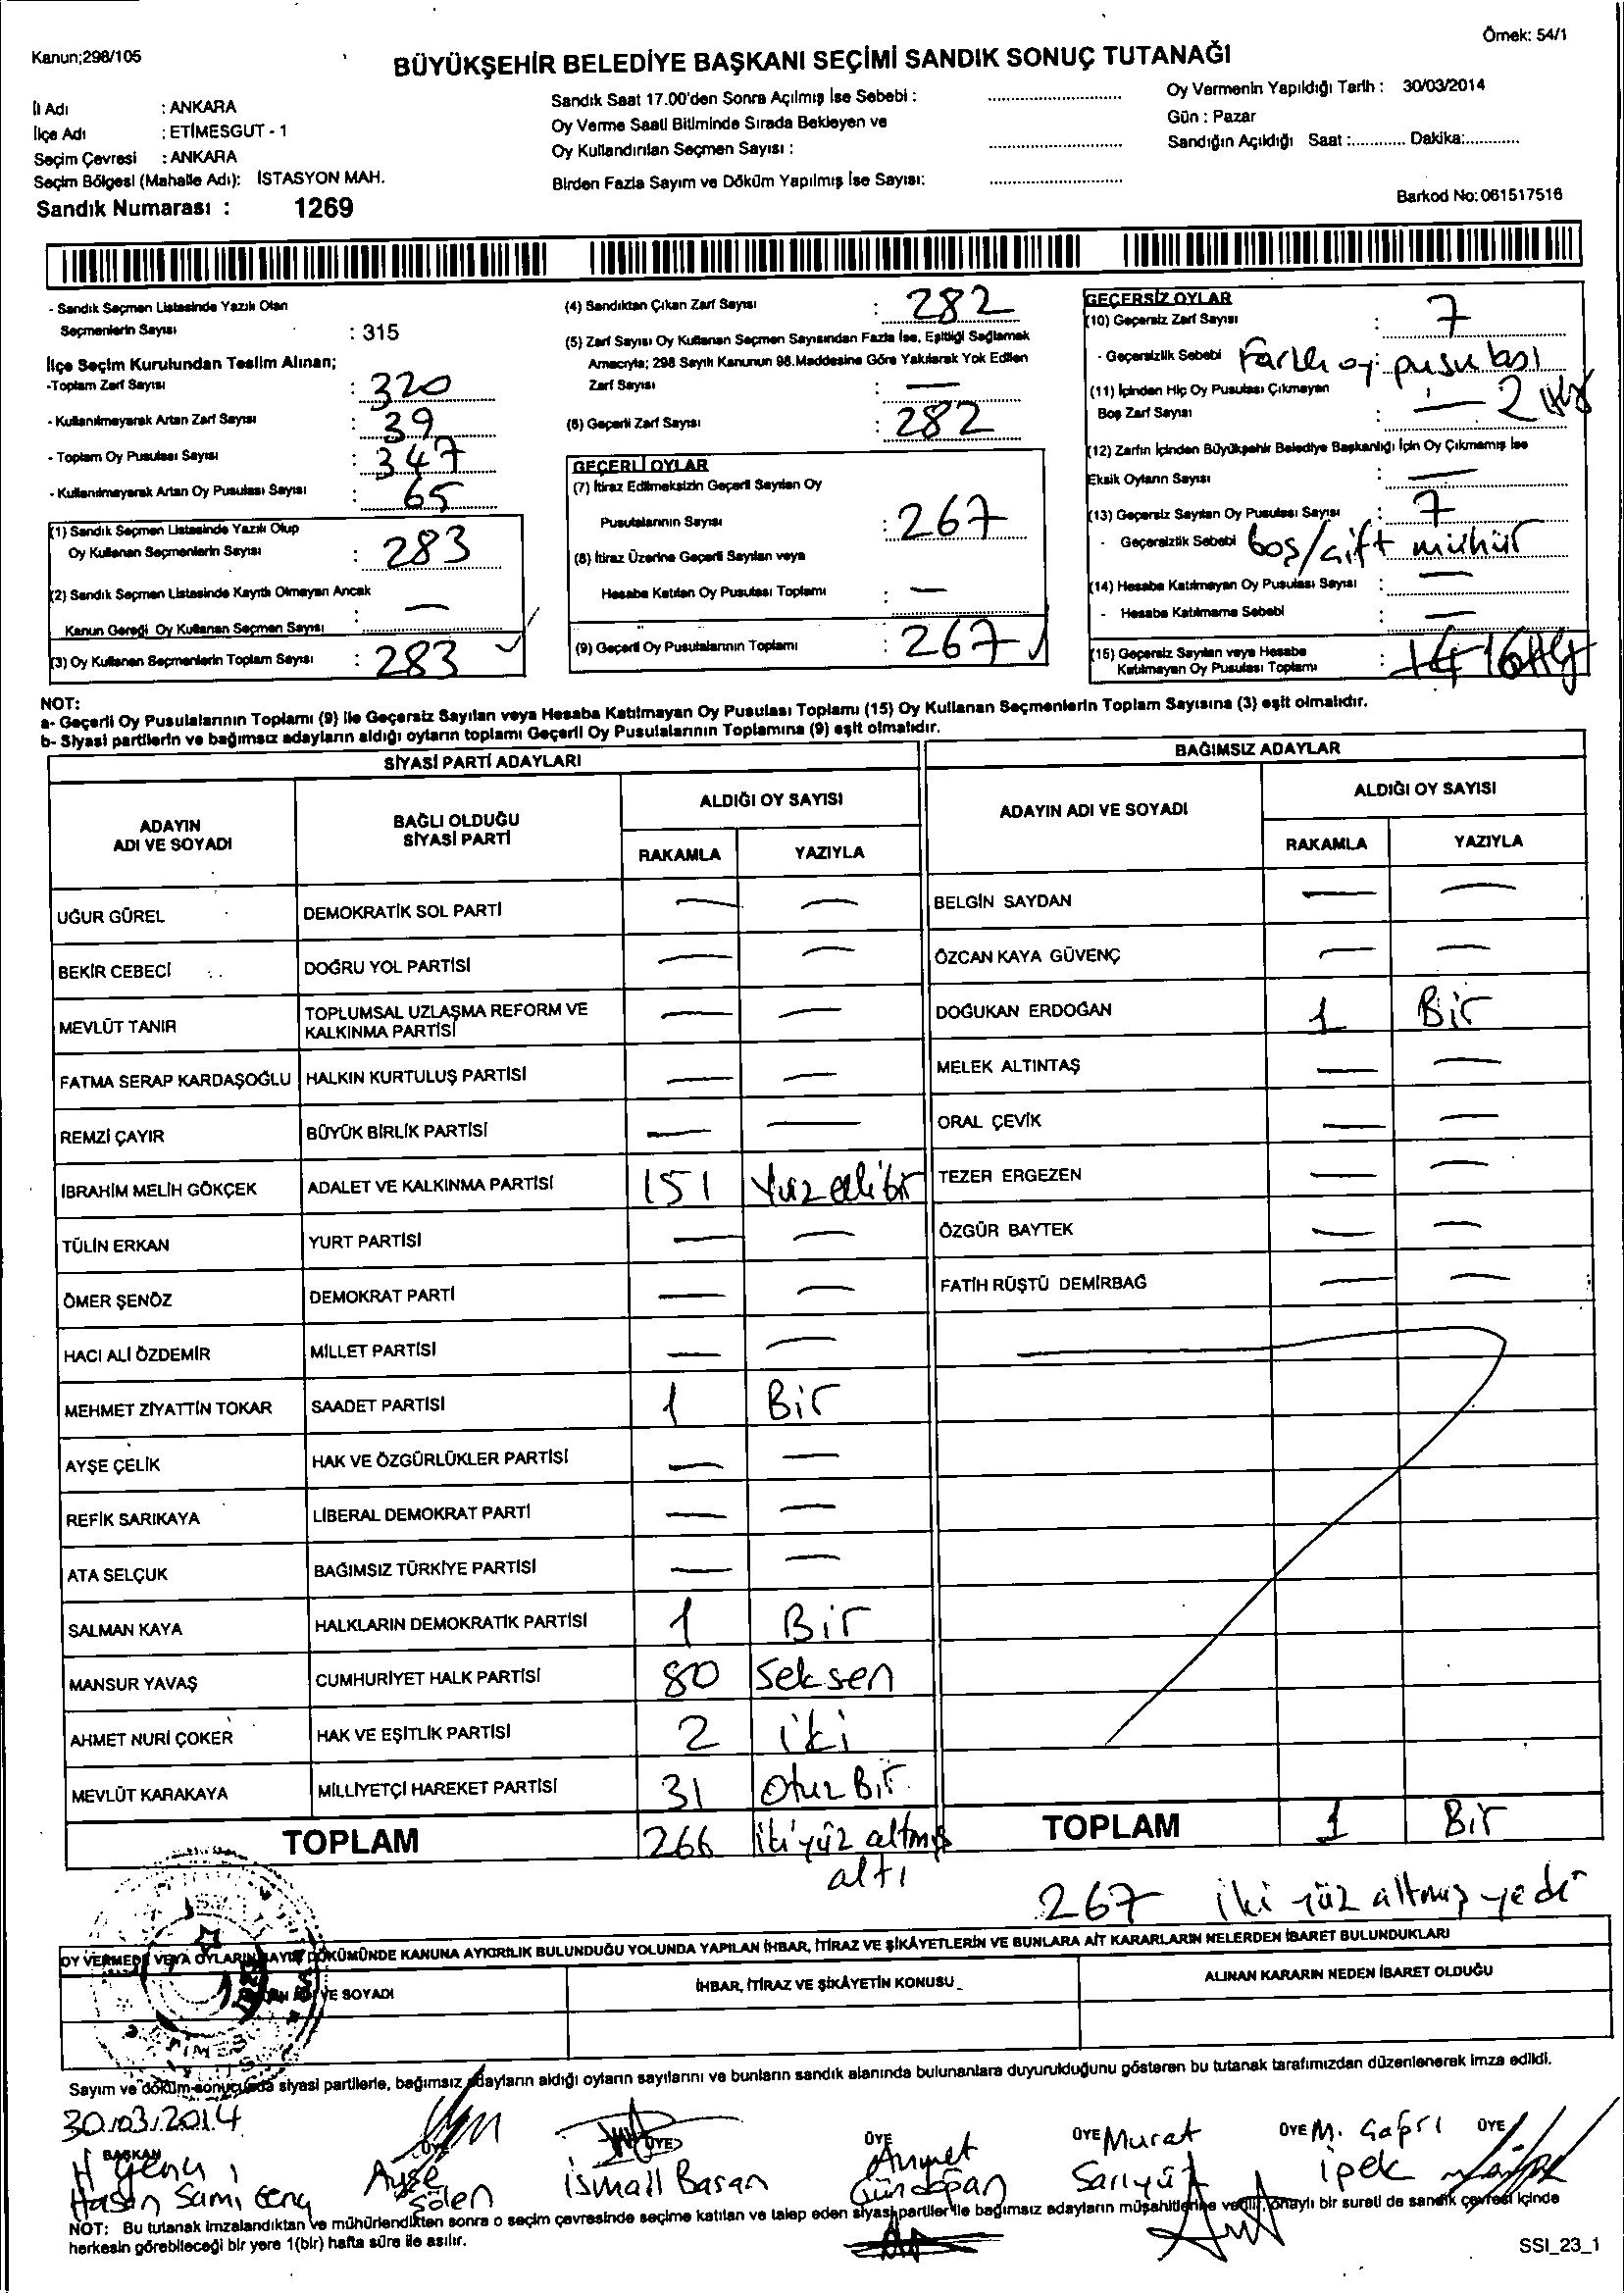 Kanun;298/105
Örnek: 54/1
BÜYÜKŞEHİR BELEDİYE BAŞKANI SEÇİMİ SANDIK SONUÇ TUTANAĞI
İl Adı : ANKARA
İlçe Adı : ETİMESGUT - 1
Seçim Çevresi : ANKARA
Seçim Bölgesi (Mahalle Adı): İSTASYON MAH.
Sandık Numarası : 1269
Sandık Saat 17.00'den Sonra Açılmış İse Sebebi : ....................
Oy Verme Saati Bitiminde Sırada Bekleyen ve
Oy Kullandırılan Seçmen Sayısı : ....................
Birden Fazla Sayım ve Döküm Yapılmış İse Sayısı: ....................
Oy Vermenin Yapıldığı Tarih : 30/03/2014
Gün : Pazar
Sandığın Açıldığı Saat :............ Dakika:............
Barkod No: 061517516
- Sandık Seçmen Listesinde Yazılı Olan
Seçmenlerin Sayısı : 315
İlçe Seçim Kurulundan Teslim Alınan;
-Toplam Zarf Sayısı : 320
- Kullanılmayarak Artan Zarf Sayısı : 39
- Toplam Oy Pusulası Sayısı : 347
- Kullanılmayarak Artan Oy Pusulası Sayısı : 65
(1) Sandık Seçmen Listesinde Yazılı Olup
Oy Kullanan Seçmenlerin Sayısı : 283
(2) Sandık Seçmen Listesinde Kayıtlı Olmayan Ancak
Kanun Gereği Oy Kullanan Seçmen Sayısı : —
(3) Oy Kullanan Seçmenlerin Toplam Sayısı : 283
(4) Sandıktan Çıkan Zarf Sayısı : 282
(5) Zarf Sayısı Oy Kullanan Seçmen Sayısından Fazla İse, Eşitliği Sağlamak
Amacıyla; 298 Sayılı Kanunun 98.Maddesine Göre Yakılarak Yok Edilen
Zarf Sayısı : —
(6) Geçerli Zarf Sayısı : 282
GEÇERLİ OYLAR
(7) İtiraz Edilmeksizin Geçerli Sayılan Oy
Pusulalarının Sayısı : 267
(8) İtiraz Üzerine Geçerli Sayılan veya
Hesaba Katılan Oy Pusulası Toplamı : —
(9) Geçerli Oy Pusulalarının Toplamı : 267
GEÇERSİZ OYLAR
(10) Geçersiz Zarf Sayısı : 7
- Geçersizlik Sebebi : Farklı oy pusulası
(11) İçinden Hiç Oy Pusulası Çıkmayan
Boş Zarf Sayısı : — 2
(12) Zarfın İçinden Büyükşehir Belediye Başkanlığı İçin Oy Çıkmamış İse
Eksik Oyların Sayısı : —
(13) Geçersiz Sayılan Oy Pusulası Sayısı : 7
- Geçersizlik Sebebi boş/çift mühür
(14) Hesaba Katılmayan Oy Pusulası Sayısı : —
- Hesaba Katılmama Sebebi : —
(15) Geçersiz Sayılan veya Hesaba
Katılmayan Oy Pusulası Toplamı : 14 16
NOT:
a- Geçerli Oy Pusulalarının Toplamı (9) ile Geçersiz Sayılan veya Hesaba Katılmayan Oy Pusulası Toplamı (15) Oy Kullanan Seçmenlerin Toplam Sayısına (3) eşit olmalıdır.
b- Siyasi partilerin ve bağımsız adayların aldığı oyların toplamı Geçerli Oy Pusulalarının Toplamına (9) eşit olmalıdır.
SİYASİ PARTİ ADAYLARI
ADAYIN ADI VE SOYADI
BAĞLI OLDUĞU SİYASİ PARTİ
ALDIĞI OY SAYISI
RAKAMLA YAZIYLA
UĞUR GÜREL DEMOKRATİK SOL PARTİ — —
BEKİR CEBECİ DOĞRU YOL PARTİSİ — —
MEVLÜT TANIR TOPLUMSAL UZLAŞMA REFORM VE KALKINMA PARTİSİ — —
FATMA SERAP KARDAŞOĞLU HALKIN KURTULUŞ PARTİSİ — —
REMZİ ÇAYIR BÜYÜK BİRLİK PARTİSİ — —
İBRAHİM MELİH GÖKÇEK ADALET VE KALKINMA PARTİSİ 151 Yüzellibir
TÜLİN ERKAN YURT PARTİSİ — —
ÖMER ŞENÖZ DEMOKRAT PARTİ — —
HACI ALİ ÖZDEMİR MİLLET PARTİSİ — —
MEHMET ZİYATTİN TOKAR SAADET PARTİSİ 1 Bir
AYŞE ÇELİK HAK VE ÖZGÜRLÜKLER PARTİSİ — —
REFİK SARIKAYA LİBERAL DEMOKRAT PARTİ — —
ATA SELÇUK BAĞIMSIZ TÜRKİYE PARTİSİ — —
SALMAN KAYA HALKLARIN DEMOKRATİK PARTİSİ 1 Bir
MANSUR YAVAŞ CUMHURİYET HALK PARTİSİ 80 Seksen
AHMET NURİ ÇOKER HAK VE EŞİTLİK PARTİSİ 2 iki
MEVLÜT KARAKAYA MİLLİYETÇİ HAREKET PARTİSİ 31 Otuz Bir
TOPLAM 266 İki yüz altmış altı
BAĞIMSIZ ADAYLAR
ADAYIN ADI VE SOYADI
ALDIĞI OY SAYISI
RAKAMLA YAZIYLA
BELGİN SAYDAN — —
ÖZCAN KAYA GÜVENÇ — —
DOĞUKAN ERDOĞAN 1 Bir
MELEK ALTINTAŞ — —
ORAL ÇEVİK — —
TEZER ERGEZEN — —
ÖZGÜR BAYTEK — —
FATİH RÜŞTÜ DEMİRBAĞ — —
TOPLAM 1 Bir
267 iki yüz altmış yedi
OY VERMEDE VEYA OYLARIN SAYIM DÖKÜMÜNDE KANUNA AYKIRILIK BULUNDUĞU YOLUNDA YAPILAN İHBAR, İTİRAZ VE ŞİKÂYETLERİN VE BUNLARA AİT KARARLARIN NELERDEN İBARET BULUNDUKLARI
VE SOYADI
İHBAR, İTİRAZ VE ŞİKÂYETİN KONUSU
ALINAN KARARIN NEDEN İBARET OLDUĞU
Sayım ve döküm sonucunda siyasi partilerle, bağımsız adayların aldığı oyların sayılarını ve bunların sandık alanında bulunanlara duyurulduğunu gösteren bu tutanak tarafımızdan düzenlenerek imza edildi.
30.03.2014
BAŞKAN
Hasan Sami Genç
ÜYE
Ayşe Şölen
ÜYE
İsmail Basan
ÜYE
Ahmet Gündoğan
ÜYE Murat Sarıyüz
ÜYE M. Gafri ipek
ÜYE
NOT: Bu tutanak imzalandıktan ve mühürlendikten sonra o seçim çevresinde seçime katılan ve talep eden siyasi partiler ile bağımsız adayların müşahitlerine verilir, onaylı bir sureti de sandık çevresi içinde
herkesin görebileceği bir yere 1(bir) hafta süre ile asılır.
SSI_23_1